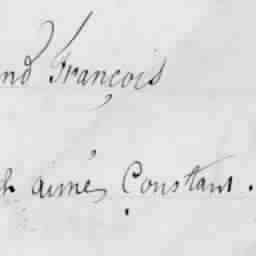 nd François
h aimé Constant.